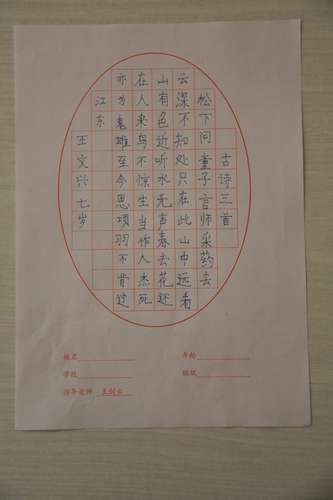 古诗三首
松下问童子言师采药去
云深不知处只在此山中远看
山有色近听水无声春去花还
在人来鸟不惊生当作人杰死
亦为鬼雄至今思项羽不肯过
江东
王文兴七岁
姓名 年龄
学校 班级
指导老师